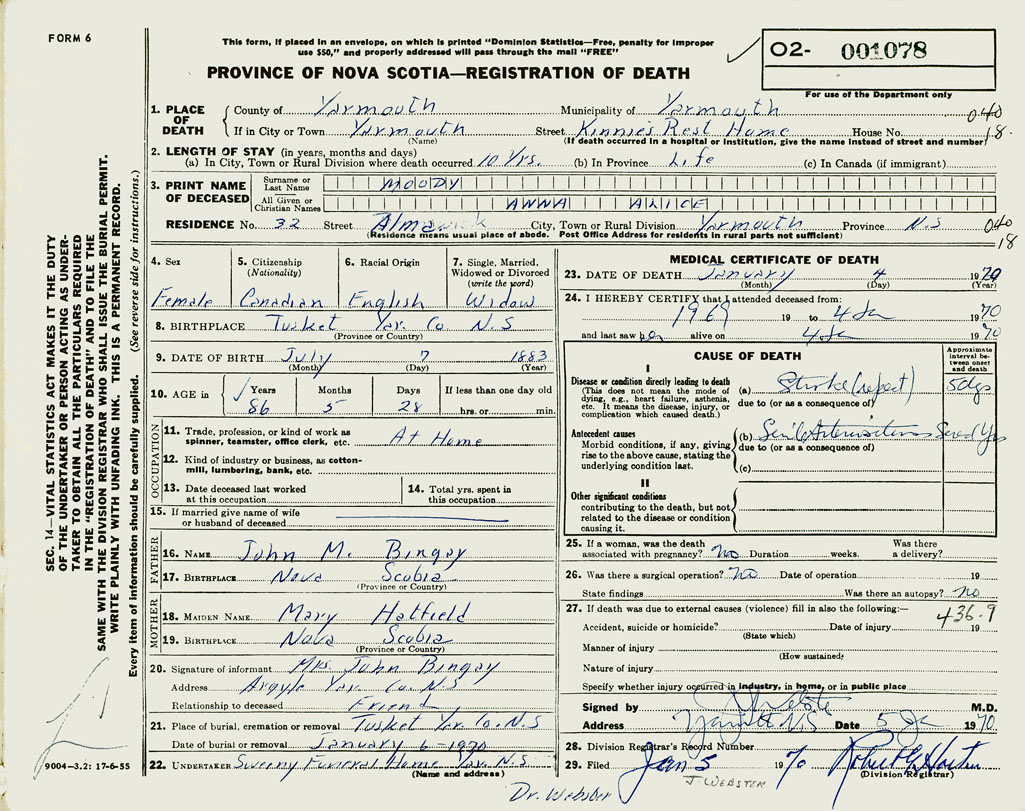 FORM 6
This form, if placed in an envelope, on which is printed "Dominion Statistics—Free, penalty for improper
use $50," and properly addressed will pass through the mail "FREE"
O2- 001078
For use of the Department only
PROVINCE OF NOVA SCOTIA—REGISTRATION OF DEATH
1. PLACE OF DEATH
County of Yarmouth Municipality of Yarmouth 040
If in City or Town Yarmouth Street Kinnie's Rest Home House No. 18.
(Name) (If death occurred in a hospital or institution, give the name instead of street and number)
2. LENGTH OF STAY (in years, months and days)
(a) In City, Town or Rural Division where death occurred 10 Yrs. (b) In Province Life (c) In Canada (if immigrant)
3. PRINT NAME OF DECEASED
Surname or Last Name MOODY
All Given or Christian Names ANNA ALICE
RESIDENCE No. 32 Street City, Town or Rural Division Yarmouth Province N.S 040
(Residence means usual place of abode. Post Office Address for residents in rural parts not sufficient) 18
4. Sex Female
5. Citizenship (Nationality) Canadian
6. Racial Origin English
7. Single, Married, Widowed or Divorced (write the word) Widow
8. BIRTHPLACE Tusket Yar. Co. N.S
(Province or Country)
9. DATE OF BIRTH July 7 1883
(Month) (Day) (Year)
10. AGE in Years 86 Months 5 Days 28 If less than one day old hrs. or min.
OCCUPATION
11. Trade, profession, or kind of work as spinner, teamster, office clerk, etc. At Home
12. Kind of industry or business, as cotton-mill, lumbering, bank, etc.
13. Date deceased last worked at this occupation
14. Total yrs. spent in this occupation
15. If married give name of wife or husband of deceased
FATHER
16. NAME John M. Bingay
17. BIRTHPLACE Nova Scotia
(Province or Country)
MOTHER
18. MAIDEN NAME Mary Hatfield
19. BIRTHPLACE Nova Scotia
(Province or Country)
20. Signature of informant Mrs. John Bingay
Address Argyle Yar. Co. N.S
Relationship to deceased Friend
21. Place of burial, cremation or removal Tusket Yar. Co. N.S
Date of burial or removal January 6-1970
22. UNDERTAKER Sweeny Funeral Home Yar. N.S
(Name and address)
MEDICAL CERTIFICATE OF DEATH
23. DATE OF DEATH January 4 1970
(Month) (Day) (Year)
24. I HEREBY CERTIFY that I attended deceased from:
1969 19 to 4 Ja 1970
and last saw her alive on 4 Ja 1970
CAUSE OF DEATH
Approximate interval between onset and death
I
Disease or condition directly leading to death
(This does not mean the mode of dying, e.g., heart failure, asthenia, etc. It means the disease, injury, or complication which caused death.)
(a) Stroke (repeat) 5 dys
due to (or as a consequence of)
Antecedent causes
Morbid conditions, if any, giving rise to the above cause, stating the underlying condition last.
(b) Senile
due to (or as a consequence of)
(c)
II
Other significant conditions
contributing to the death, but not related to the disease or condition causing it.
25. If a woman, was the death associated with pregnancy? No Duration weeks. Was there a delivery?
26. Was there a surgical operation? No Date of operation 19
State findings Was there an autopsy? No
27. If death was due to external causes (violence) fill in also the following:— 436.9
Accident, suicide or homicide? Date of injury 19
(State which)
Manner of injury
(How sustained)
Nature of injury
Specify whether injury occurred in industry, in home, or in public place
Signed by J Webster M.D.
Address Yarmouth N.S Date 5 Ja 1970
28. Division Registrar's Record Number
29. Filed Jan 5 1970
(Division Registrar)
J WEBSTER
Dr. Webster
SEC. 14—VITAL STATISTICS ACT MAKES IT THE DUTY
OF THE UNDERTAKER OR PERSON ACTING AS UNDER-
TAKER TO OBTAIN ALL THE PARTICULARS REQUIRED
IN THE "REGISTRATION OF DEATH" AND TO FILE THE
SAME WITH THE DIVISION REGISTRAR WHO SHALL ISSUE THE BURIAL PERMIT.
WRITE PLAINLY WITH UNFADING INK. THIS IS A PERMANENT RECORD.
Every item of information should be carefully supplied. (See reverse side for instructions.)
9004—3.2: 17-6-55